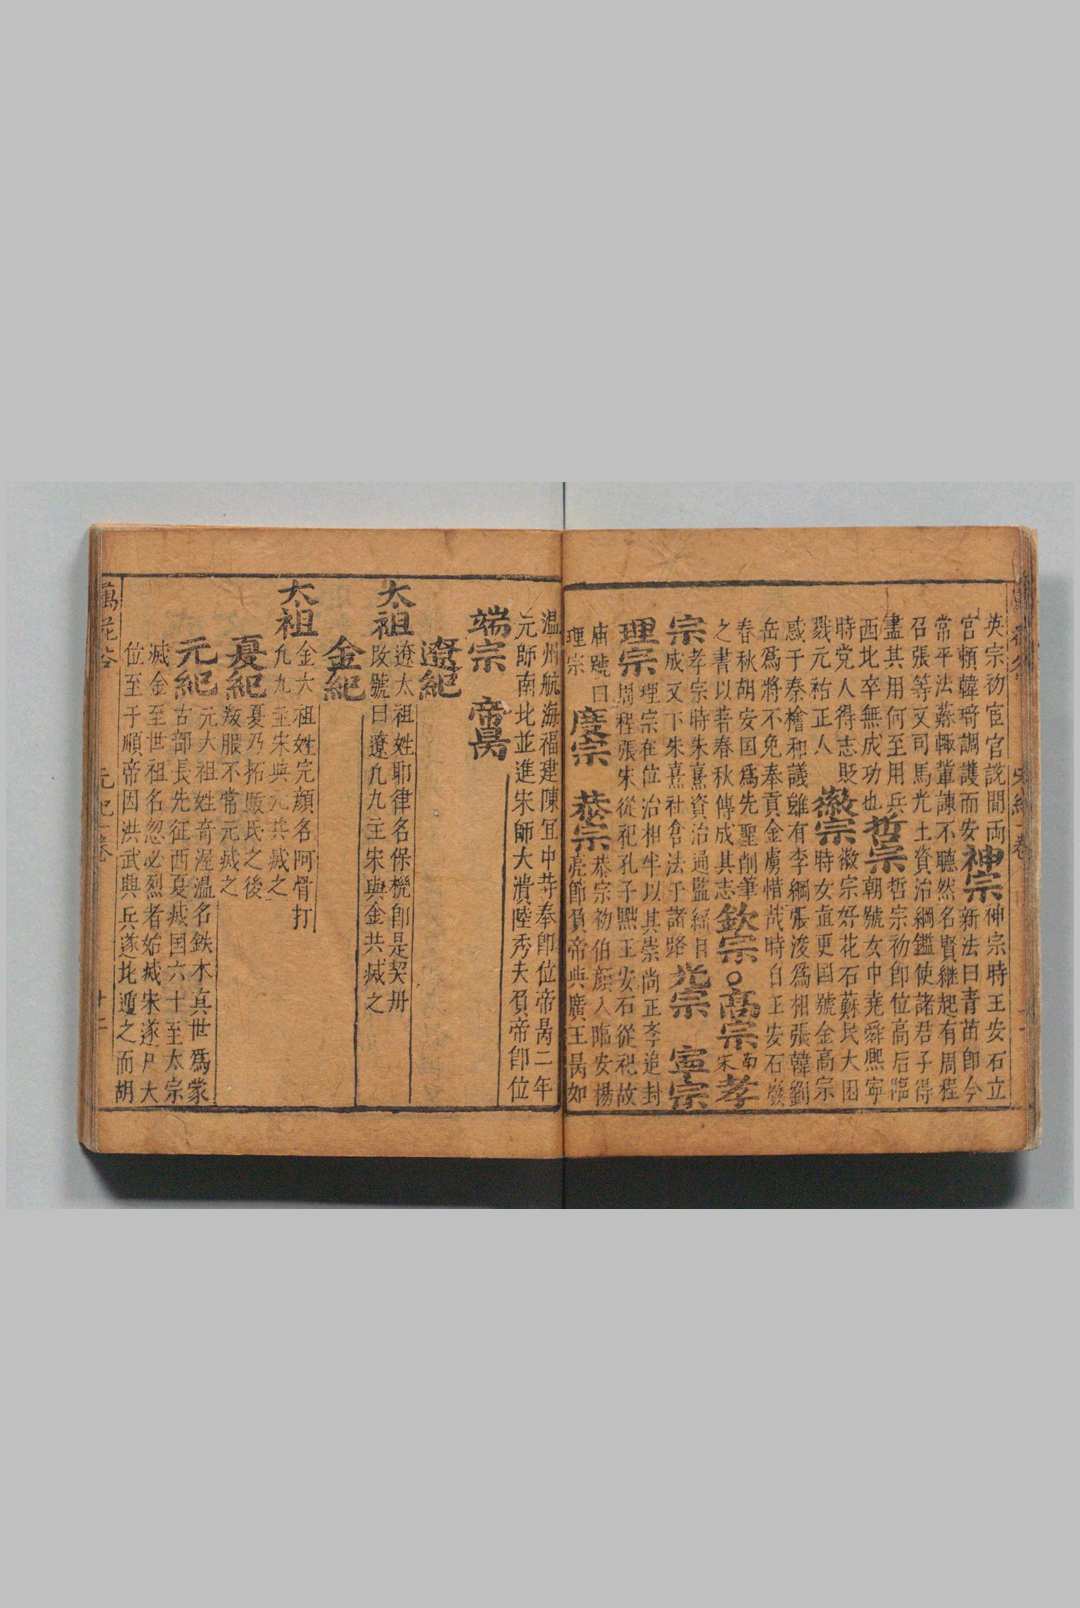 英宗初宦官說間両
宮頼韓琦調護而安
神宗
神宗時王安石立
新法曰青苗即今
常平法蘇輙輩諌不聽然名賢継起有周程
召張等又司馬光土資治綱鑑使諸君子得
盡其用何至用兵
西北卒無成功也
哲宗
哲宗初即位高后臨
朝號女中堯舜熙寧
時党人得志貶
戮元祐正人
徽宗
徽宗好花石蘇民大困
時女直更国號金高宗
惑于秦檜和議雖有李綱張浚爲相張韓劉
岳爲將不免奉貢金虜惜㦲時自王安石廢
春秋胡安国爲先聖削筆
之書以若春秋傳成其志
欽宗
高宗
南宋
孝
宗
孝宗時朱熹資治通監綱目
成又下朱熹社倉法于諸路
光宗
寧宗
理宗
理宗在位治相半以其崇尚正李追封
周程張朱從祀孔子黜王安石從祀故
庙號曰
理宗
度宗
恭宗
恭宗初伯顔入臨安揚
亮節負帝與廣王昺如
温州航海福建陳宜中䒭奉即位帝昺二年
元師南北並進宋師大潰陸秀夫負帝即位
端宗
帝昺
遼紀
太祖
遼太祖姓耶律名保機即是契丹
改號曰遼九九主宋與金共㓕之
金紀
太祖
金太祖姓完顔名阿骨打
九九主宋與元共㓕之
夏紀
夏乃拓厰氏之後
叛服不常元㓕之
元紀
元太祖姓奇渥温名鉄木真世爲蒙
古部長先征西夏㓕国六十至太宗
㓕金至世祖名忽必烈者始㓕宋遂尸大
位至于順帝因洪武與兵遂北遁之而胡
萬花谷
元紀 卷
十二